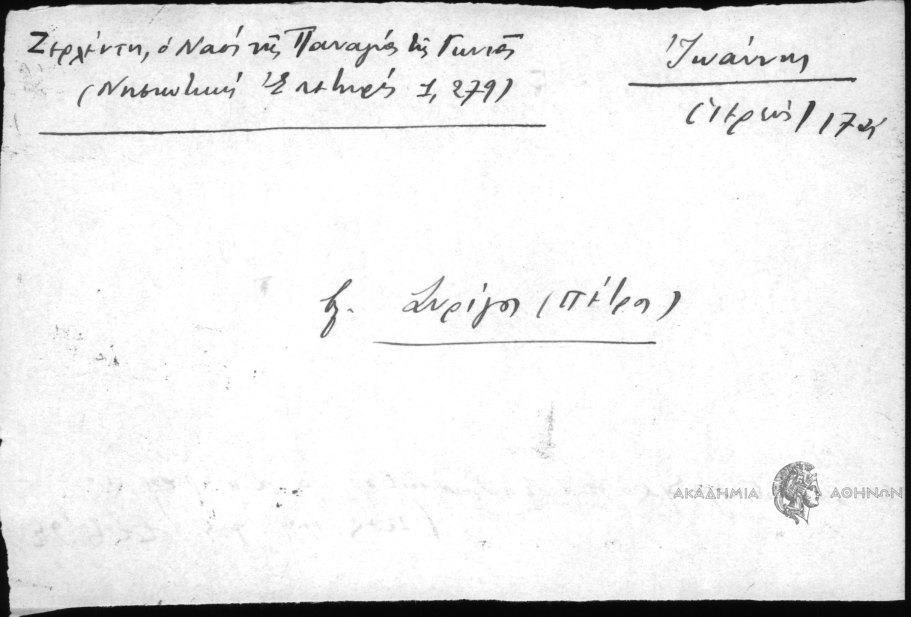 Ζερλέντη, ὁ Ναὸς τῆς Παναγίας τῆς Γωνιᾶς
(Νησιωτικὴ Ἐπετηρὶς 1, 279)
Ἰωάννης
(ἱερεὺς) 17
βλ. Συρίγος (Πέτρος)
ΑΚΑΔΗΜΙΑ ΑΘΗΝΩΝ